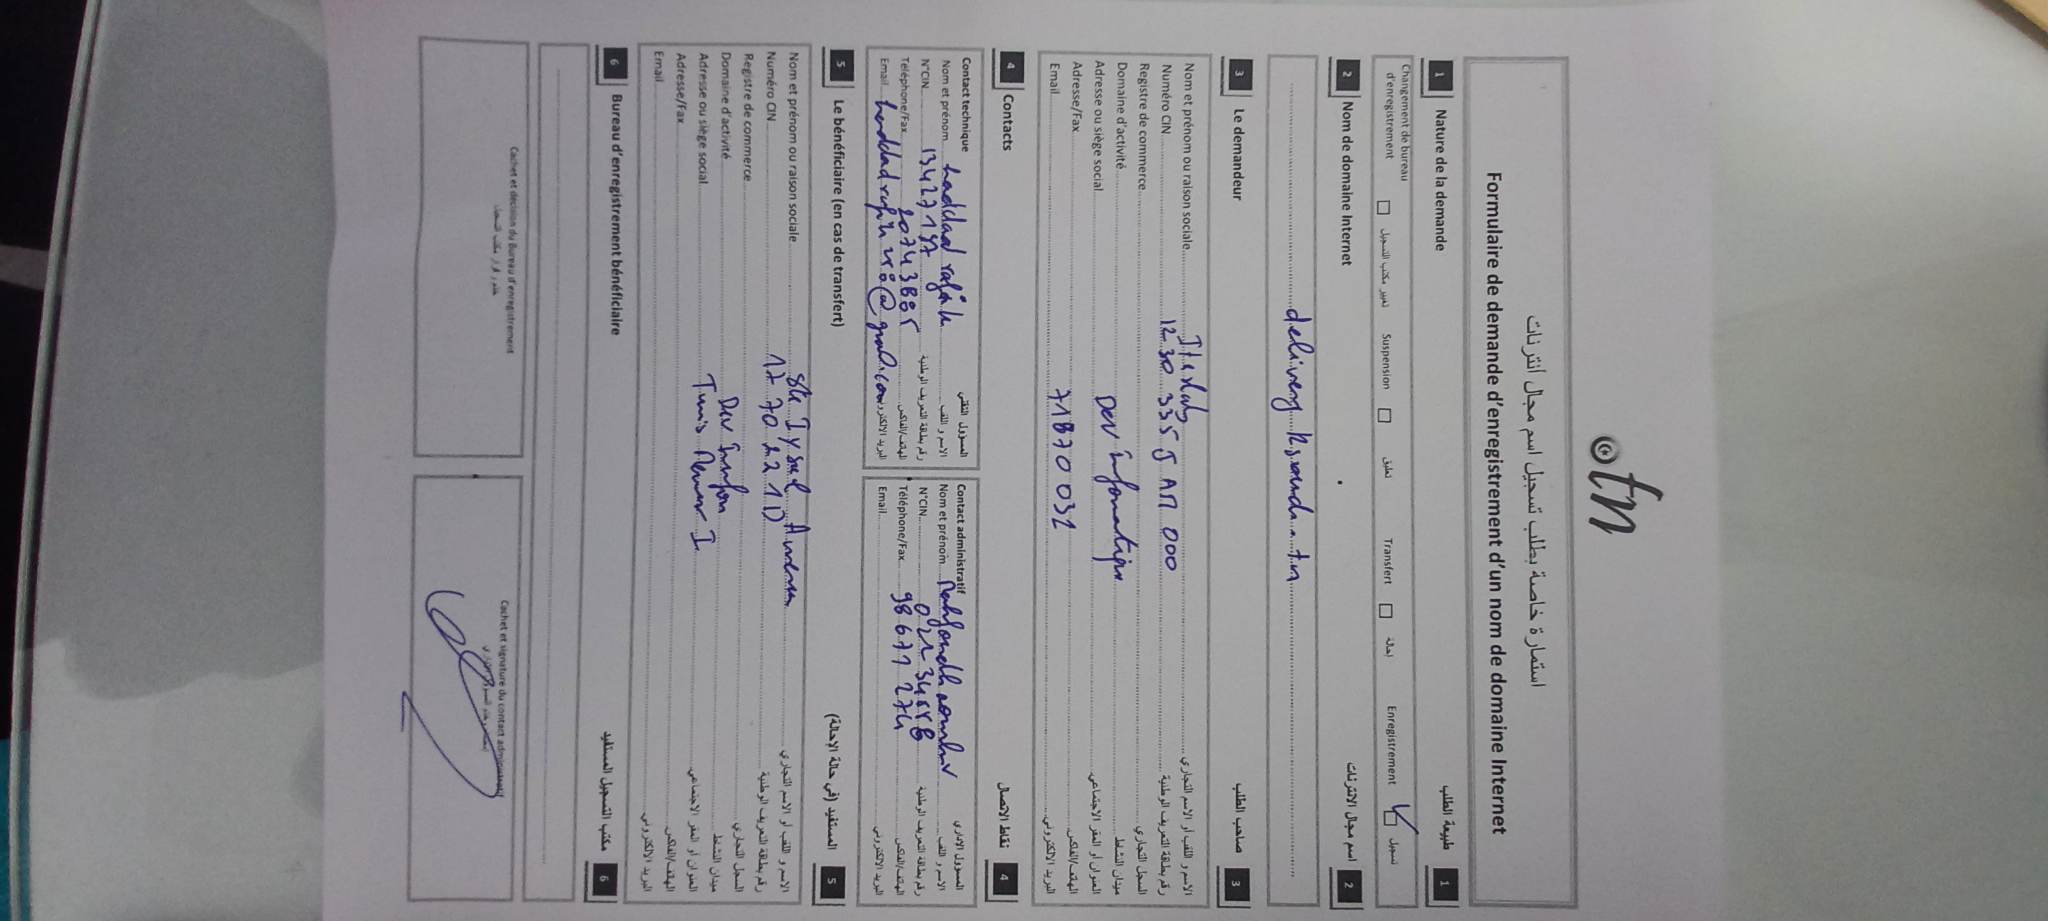 .tn
استمارة خاصة بطلب تسجيل اسم مجال أنترنات
Formulaire de demande d'enregistrement d'un nom de domaine Internet
1 Nature de la demande طبيعة الطلب 1
Changement de bureau d'enregistrement تغيير مكتب التسجيل Suspension تعليق Transfert إحالة Enregistrement تسجيل
2 Nom de domaine Internet اسم مجال الانترنات 2
3 Le demandeur صاحب الطلب 3
Nom et prénom ou raison sociale الاسم و اللقب أو الاسم التجاري
Numéro CIN 12 30 335 J AM 000 رقم بطاقة التعريف الوطنية
Registre de commerce السجل التجاري
Domaine d'activité Dev informatique ميدان النشاط
Adresse ou siège social العنوان أو المقر الاجتماعي
Adresse/Fax 71870032 الهاتف/الفاكس
Email البريد الالكتروني
4 Contacts نقاط الاتصال 4
Contact technique المسؤول التقني
Nom et prénom haddad الاسم و اللقب
N°CIN رقم بطاقة التعريف الوطنية
Téléphone/Fax الهاتف/الفاكس
Email البريد الالكتروني
Contact administratif المسؤول الاداري
Nom et prénom الاسم و اللقب
N°CIN رقم بطاقة التعريف الوطنية
Téléphone/Fax 98 671 274 الهاتف/الفاكس
Email البريد الالكتروني
5 Le bénéficiaire (en cas de transfert) المستفيد (في حالة الإحالة) 5
Nom et prénom ou raison sociale الاسم و اللقب أو الاسم التجاري
Numéro CIN رقم بطاقة التعريف الوطنية
Registre de commerce السجل التجاري
Domaine d'activité ميدان النشاط
Adresse ou siège social Tunis العنوان أو المقر الاجتماعي
Adresse/Fax الهاتف/الفاكس
Email البريد الالكتروني
6 Bureau d'enregistrement bénéficiaire مكتب التسجيل المستفيد 6
Cachet et décision du Bureau d'enregistrement
ختم و قرار مكتب التسجيل
Cachet et signature du contact administratif